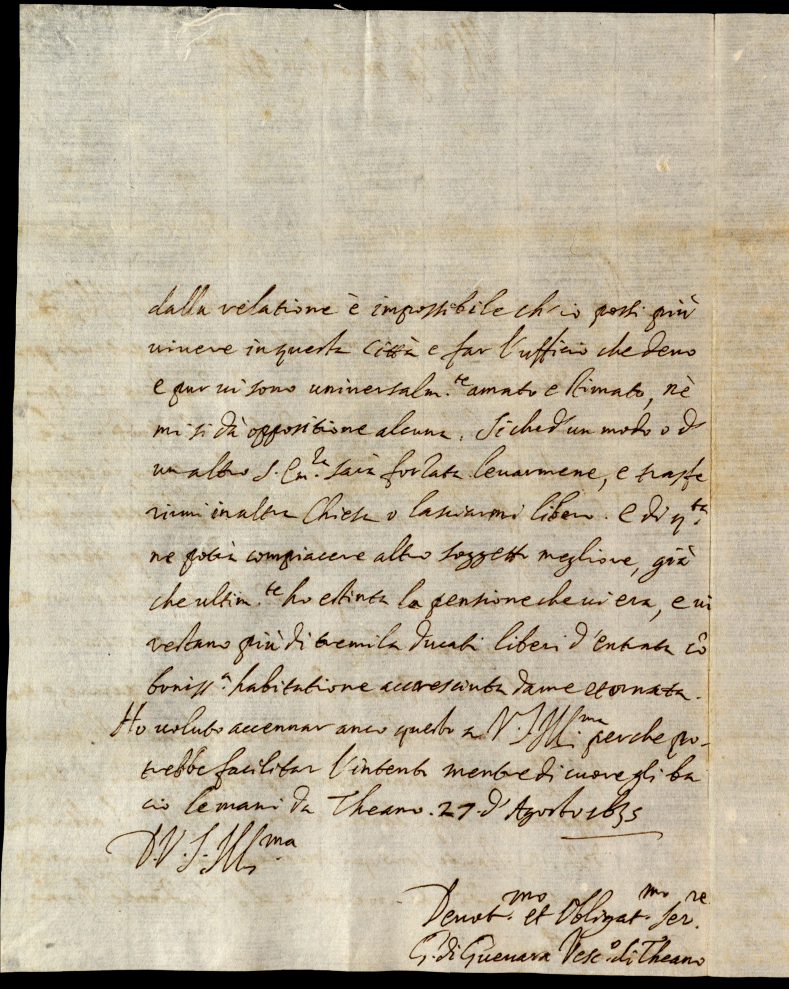 dalla relatione è impossibile ch'io possi più
uiuere in questa Città e far l'ufficio che deuo
e pur ui sono uniuersalm.te amato e stimato, nè
mi si dà oppositione alcuna. Siche d'un modo o d'
un altro S. Em.za sarà forzata leuarmene, e trasfe
rirmi in altra Chiesa o lasciarmi libero. e di q.ta
ne potrà compiacere altro soggetto megliore, già
che ultim.te ho estinta la pensione che ui era, e ui
restano più di tremila ducati liberi d'entrata cõ
boniss.a habitatione accresciuta da me et ornata.
Ho uoluto accennar anco questo a V. S. Ill.ma perche po-
trebbe facilitar l'intento mentre di cuore gli ba
cio le mani da Theano. 27. d'Agosto 1635
D. V. S. Ill.ma
Deuot.mo et Obligat.mo Ser.re
G. di Gueuara Vesc.o di Theano